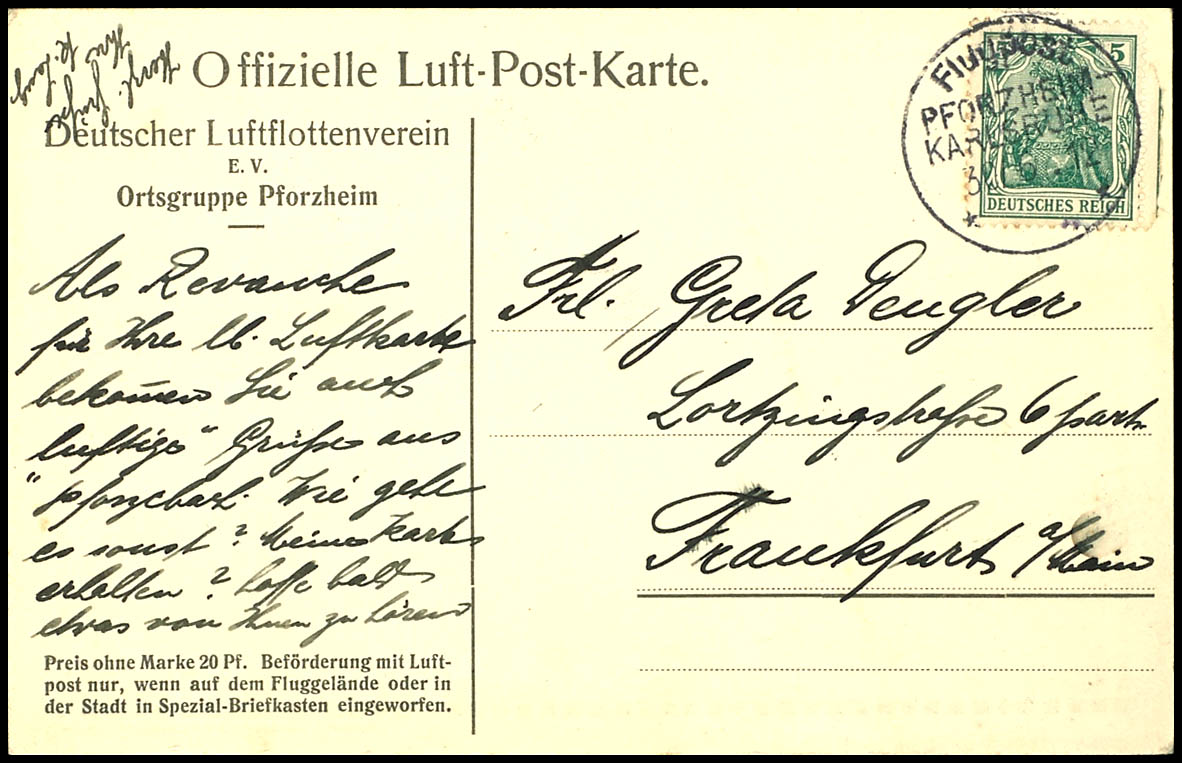 Offizielle Luft-Post-Karte.
Deutscher Luftflottenverein
E. V.
Ortsgruppe Pforzheim
Als Revanche
für Ihre lb. Luftkarte
bekom̅en Sie auch
luftige" Grüße aus
"Pforzheim. Wie geht
es sonst? Meine Karte
erhalten? Hoffe bald
etwas von Ihnen zu hören
Preis ohne Marke 20 Pf. Beförderung mit Luft-
post nur, wenn auf dem Fluggelände oder in
der Stadt in Spezial-Briefkasten eingeworfen.
Flugpost
PFORZHEIM-
KARLSRUHE
5
DEUTSCHES REICH
Frl. Greta Dengler
Lortzingstraße 6 part.
Frankfurt a/Main